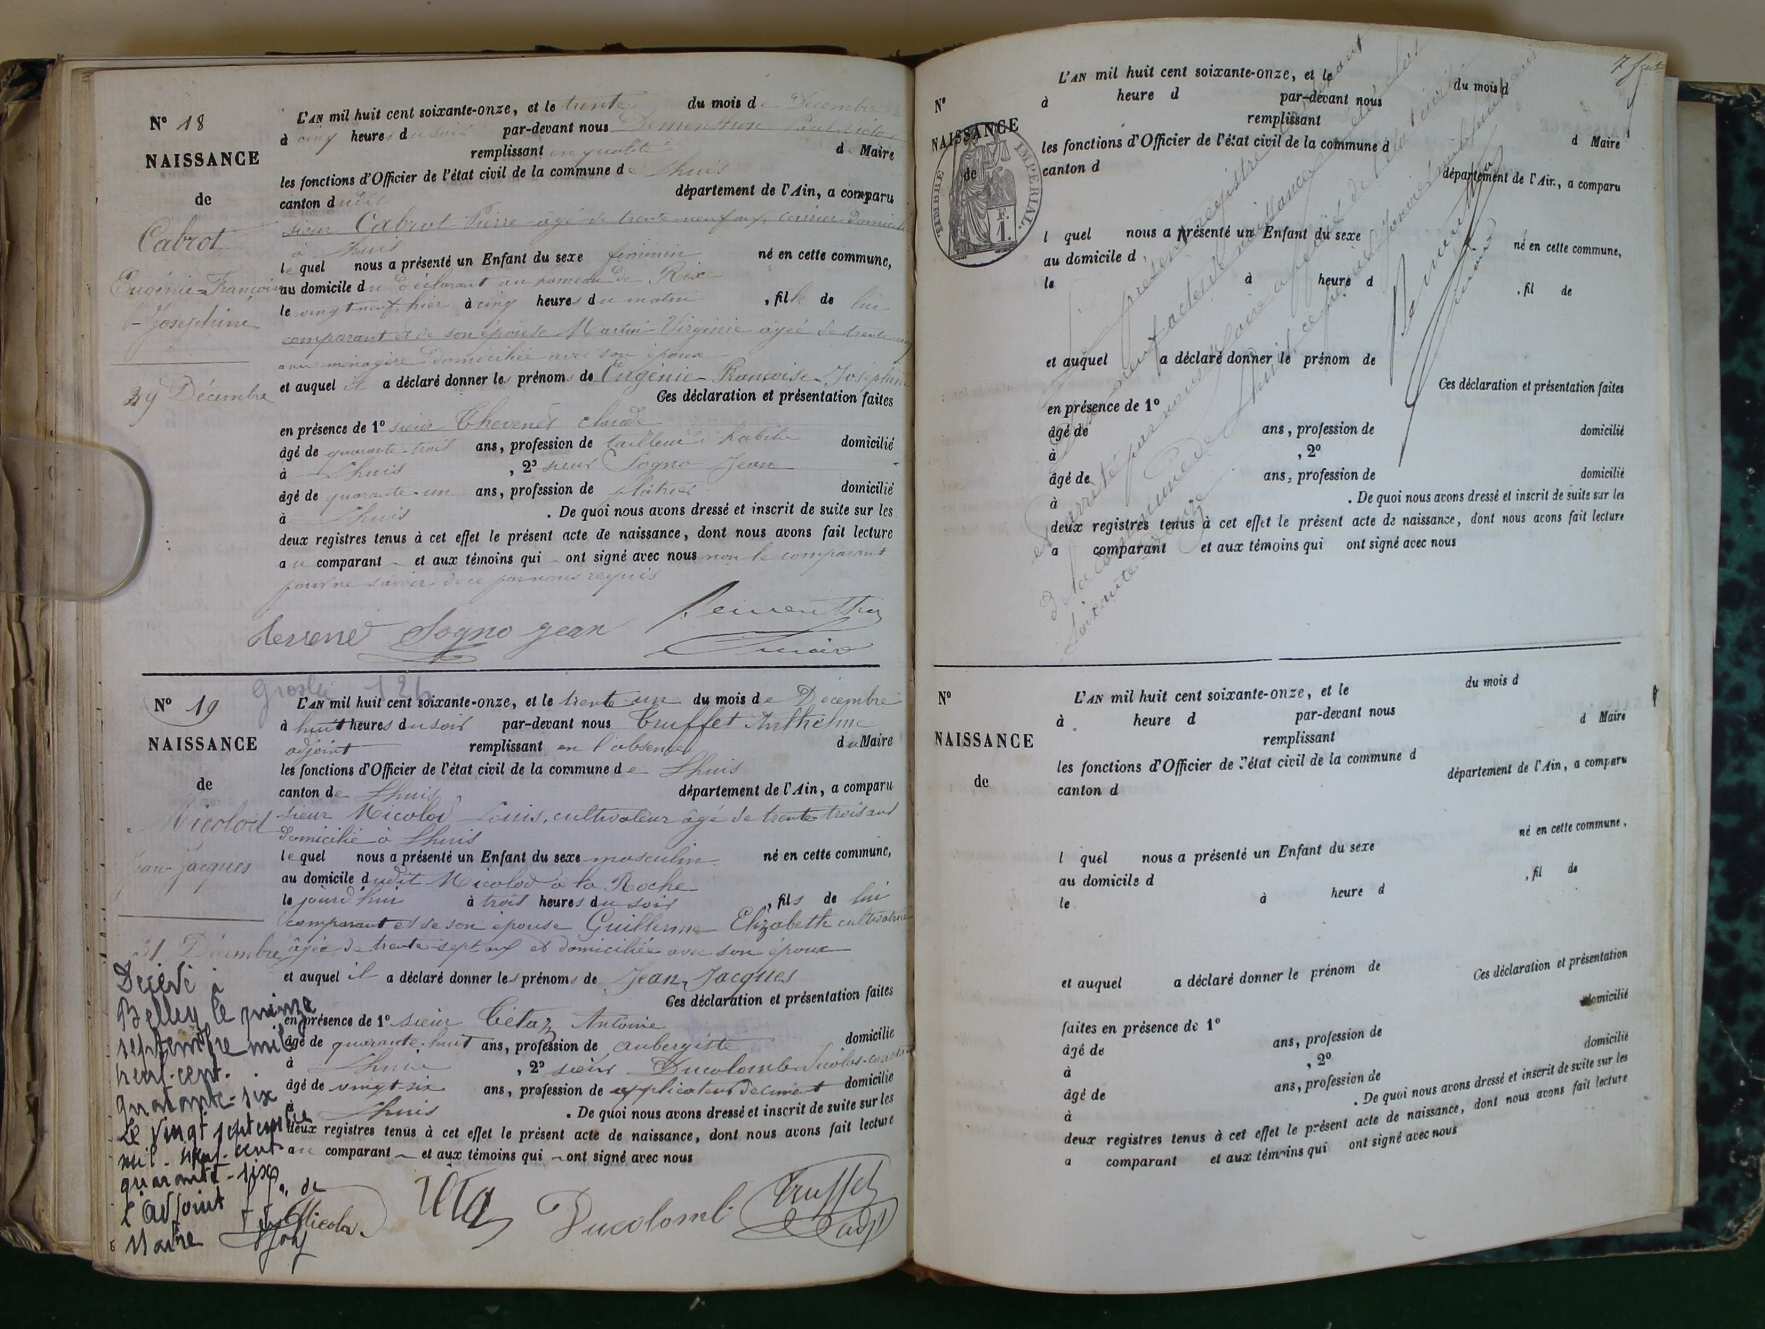 N° 18
NAISSANCE
de
Cabrot
Eugénie-Françoise
-Joséphine
29 Décembre
L'AN mil huit cent soixante-onze, et le trente du mois de Décembre
à cinq heures du soir par-devant nous
remplissant en qualité de Maire
les fonctions d'Officier de l'état civil de la commune de Lhuis
canton dudit département de l'Ain, a comparu
sieur Cabrot Pierre âgé de trente neuf ans, carrier domicilié
à Lhuis
lequel nous a présenté un Enfant du sexe féminin né en cette commune,
au domicile du déclarant au hameau de Rix
le vingt neuf hier à cinq heures du matin, fille de lui
comparant et de son épouse Martin Virginie âgée de trente
ans ménagère domiciliée avec son époux
et auquel il a déclaré donner les prénoms de Eugénie-Françoise-Joséphine
Ces déclaration et présentation faites
en présence de 1° sieur Thevenet Claude
âgé de quarante-trois ans, profession de tailleur d'habits domicilié
à Lhuis, 2° sieur Sogno Jean
âgé de quarante-un ans, profession de plâtrier domicilié
à Lhuis. De quoi nous avons dressé et inscrit de suite sur les
deux registres tenus à cet effet le présent acte de naissance, dont nous avons fait lecture
au comparant et aux témoins qui ont signé avec nous non le comparant
pour ne savoir de ce par nous requis
Sogno jean
Maire
Groslée 126
N° 19
NAISSANCE
de
Nicolod
Jean-Jacques
31 Décembre
L'AN mil huit cent soixante-onze, et le trente un du mois de Décembre
à huit heures du soir par-devant nous Truffet Anthelme
adjoint remplissant en l'absence du Maire
les fonctions d'Officier de l'état civil de la commune de Lhuis
canton de Lhuis département de l'Ain, a comparu
sieur Nicolod Louis, cultivateur âgé de trente trois ans
domicilié à Lhuis
lequel nous a présenté un Enfant du sexe masculin né en cette commune,
au domicile dudit Nicolod à la Roche
le jourd'hui à trois heures du soir, fils de lui
comparant et de son épouse Guillerme Elizabeth cultivatrice
âgée de trente-sept ans et domiciliée avec son époux
et auquel il a déclaré donner les prénoms de Jean, Jacques
Ces déclaration et présentation faites
en présence de 1° sieur Tétaz Antoine
âgé de quarante-huit ans, profession de aubergiste domicilié
à Lhuis, 2° sieur Ducolomb Nicolas
âgé de vingt six ans, profession de applicateur de ciment domicilié
à Lhuis. De quoi nous avons dressé et inscrit de suite sur les
deux registres tenus à cet effet le présent acte de naissance, dont nous avons fait lecture
au comparant et aux témoins qui ont signé avec nous
Décédé à
Belley le quinze
septembre mil
neuf cent
quarante-six
Le vingt septembre
mil-neuf-cent
quarante-six
L'adjoint f. f. de
Maire
Nicolod
Ducolomb
Truffet
adj
N°
NAISSANCE
de
TIMBRE IMPERIAL
F.
1.
L'AN mil huit cent soixante-onze, et le du mois d
à heure d par-devant nous
remplissant d Maire
les fonctions d'Officier de l'état civil de la commune d
canton d département de l'Ain, a comparu
l quel nous a présenté un Enfant du sexe né en cette commune,
au domicile d
le à heure d, fil de
et auquel a déclaré donner le prénom de
Ces déclaration et présentation faites
en présence de 1°
âgé de ans, profession de domicilié
à, 2°
âgé de ans, profession de domicilié
à. De quoi nous avons dressé et inscrit de suite sur les
deux registres tenus à cet effet le présent acte de naissance, dont nous avons fait lecture
a comparant et aux témoins qui ont signé avec nous
N°
NAISSANCE
de
L'AN mil huit cent soixante-onze, et le du mois d
à heure d par-devant nous
remplissant d Maire
les fonctions d'Officier de l'état civil de la commune d
canton d département de l'Ain, a comparu
l quel nous a présenté un Enfant du sexe né en cette commune,
au domicile d
le à heure d, fil de
et auquel a déclaré donner le prénom de
Ces déclaration et présentation
faites en présence de 1° domicilié
âgé de ans, profession de
à, 2° domicilié
âgé de ans, profession de
à. De quoi nous avons dressé et inscrit de suite sur les
deux registres tenus à cet effet le présent acte de naissance, dont nous avons fait lecture
a comparant et aux témoins qui ont signé avec nous